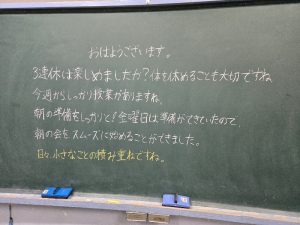 おはようございます。
3連休は楽しめましたか？体を休めることも大切ですね
今週からしっかり授業がありますね。
朝の準備をしっかりと！金曜日は準備ができていたので、
朝の会をスムーズに始めることができました。
日々、小さなことの積み重ねですね。